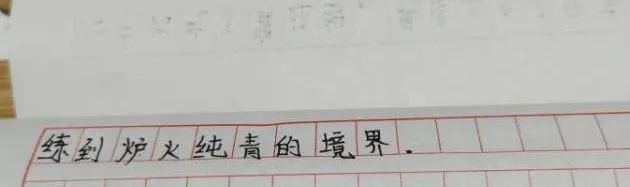 练到炉火纯青的境界.